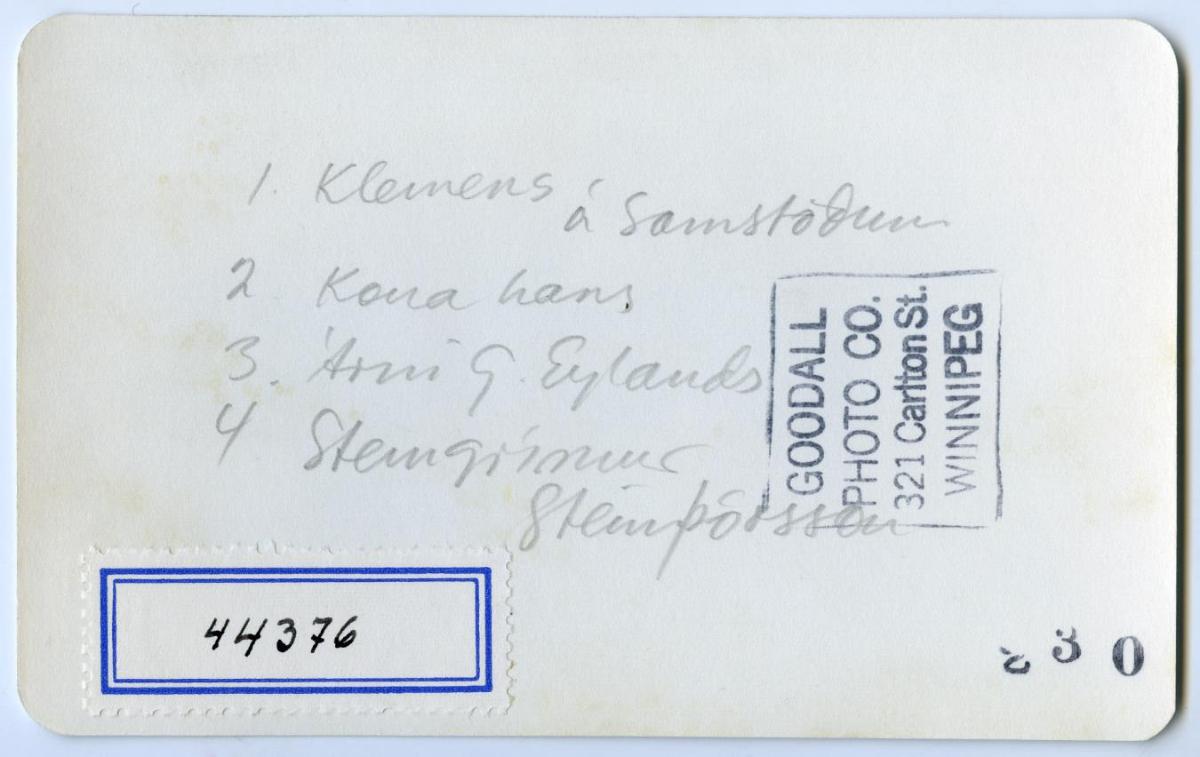 1. Klemens á Samstöðum
2 Kona hans
3. Árni G. Eylands
4 Steingrímur
Steinþórsson
GOODALL
PHOTO CO.
321 Carlton St.
WINNIPEG
44376
30